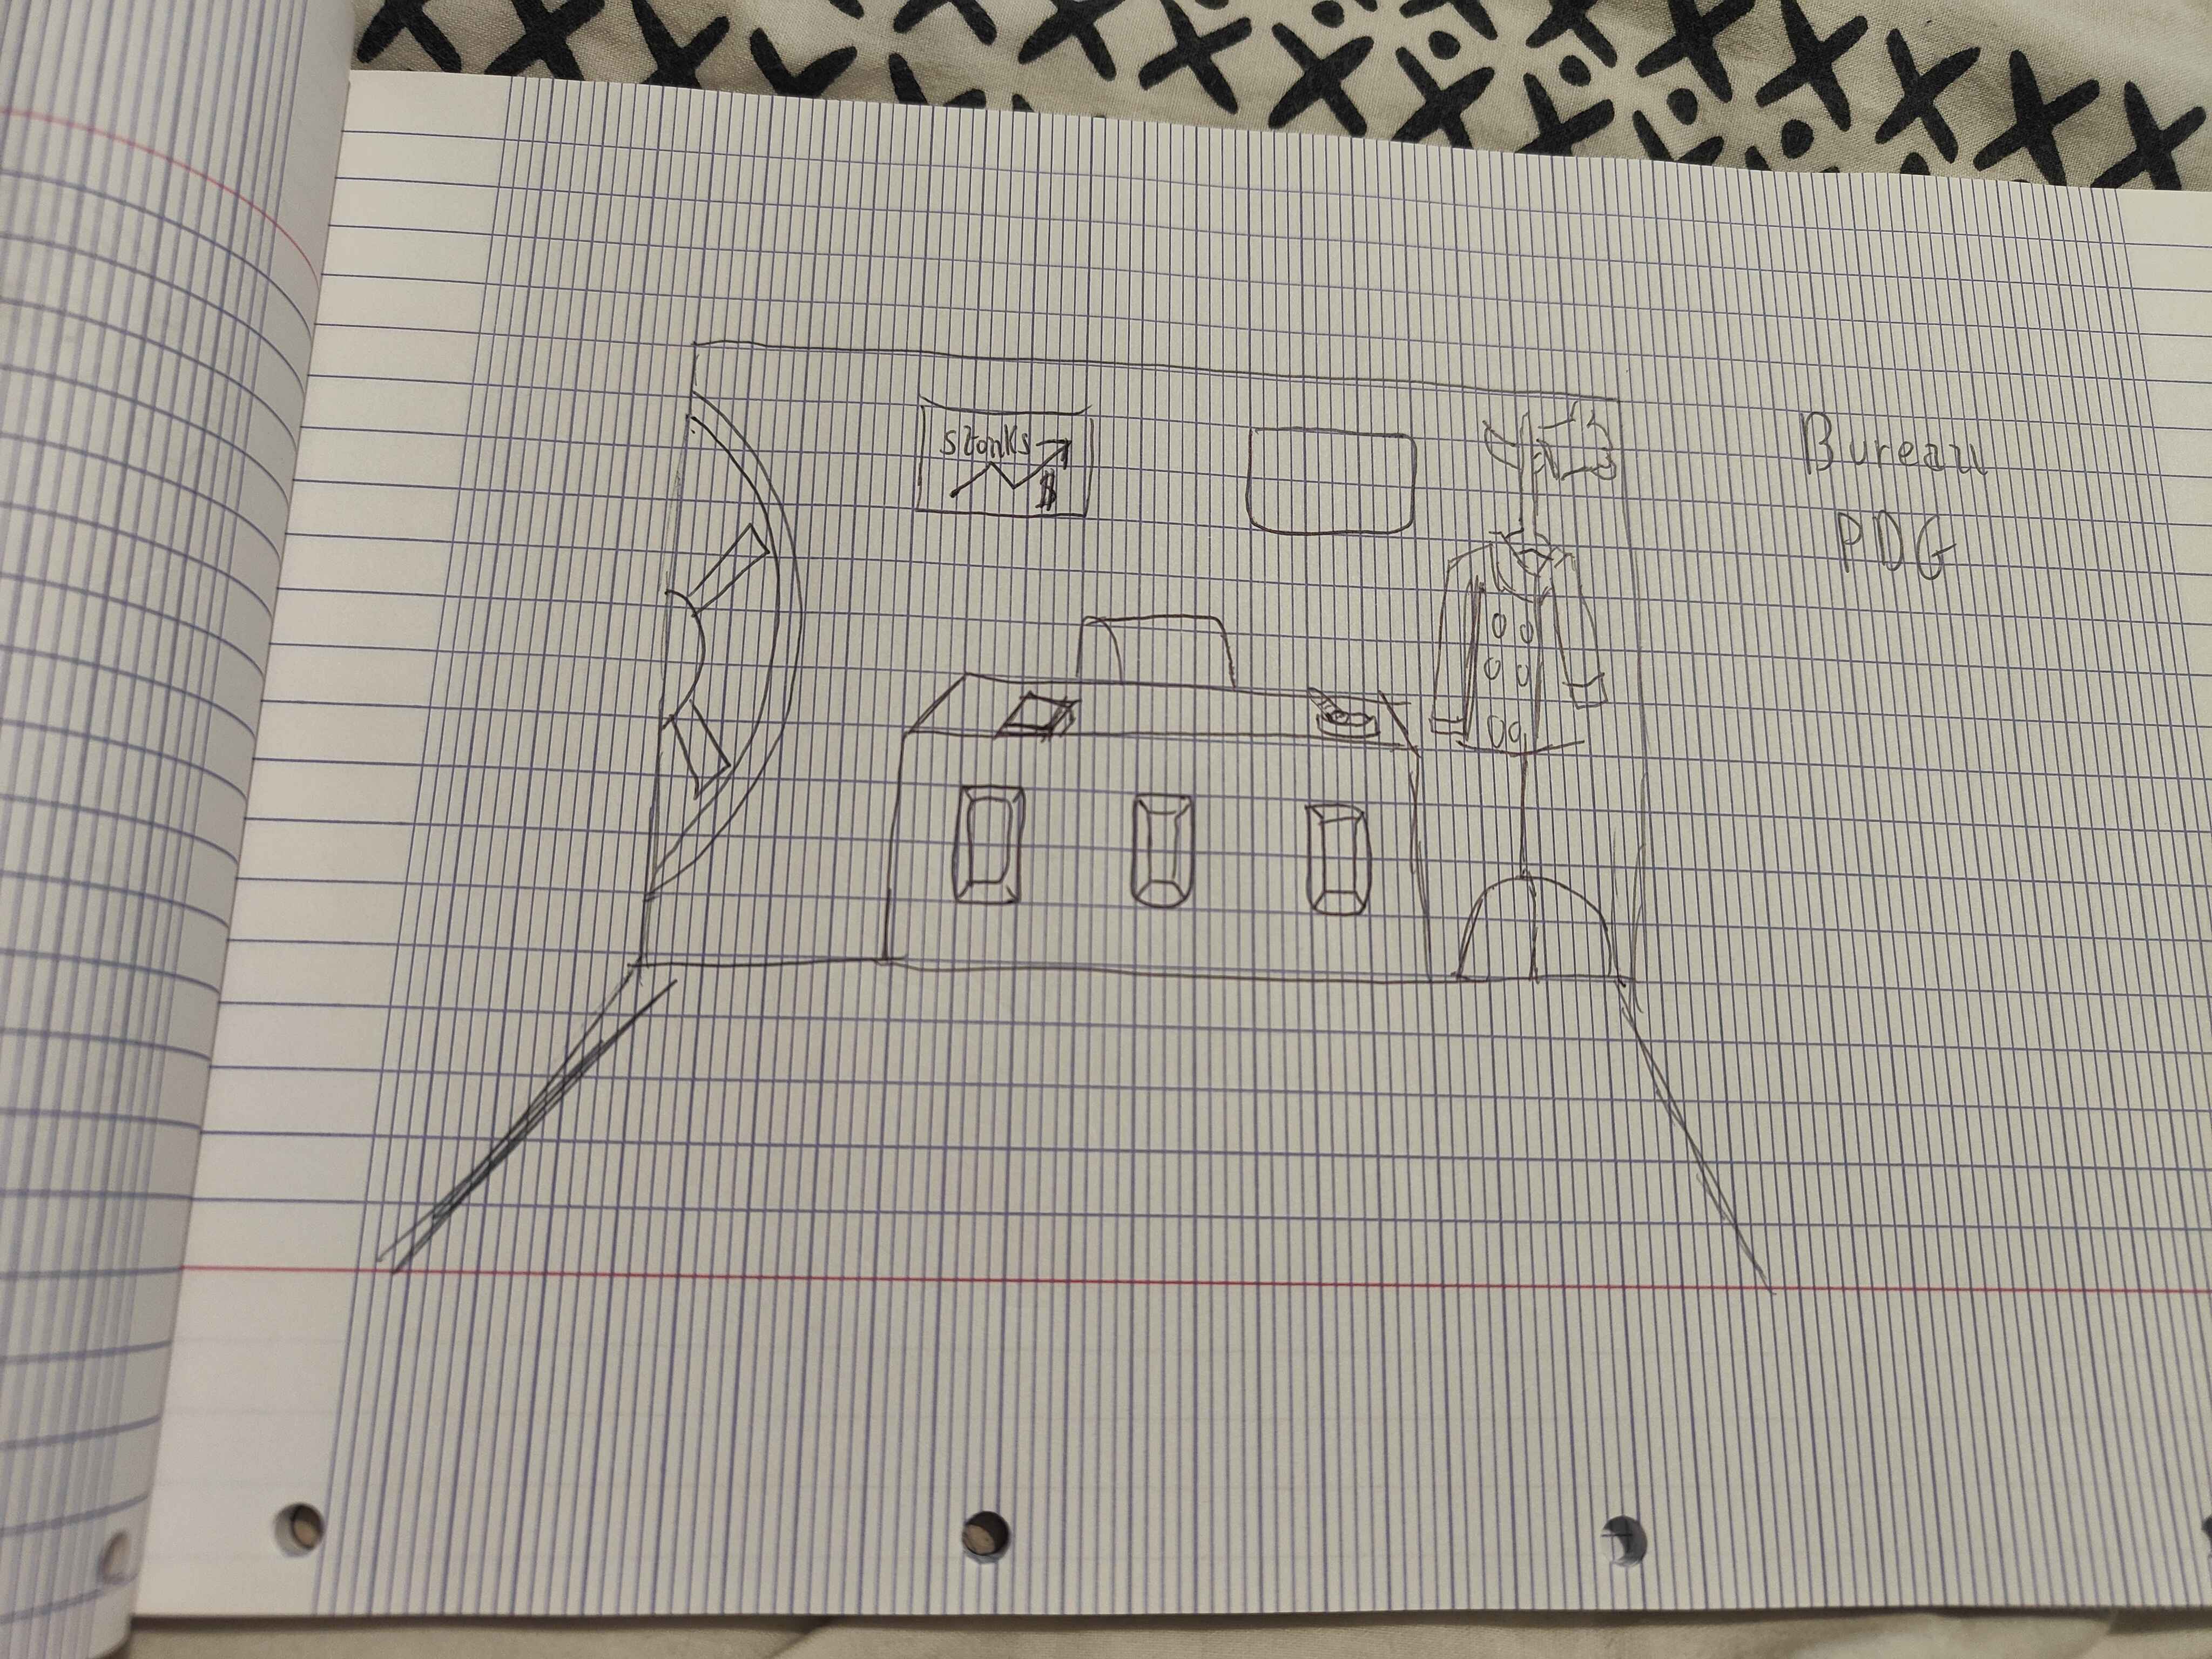 stonks
$
Bureau
PDG